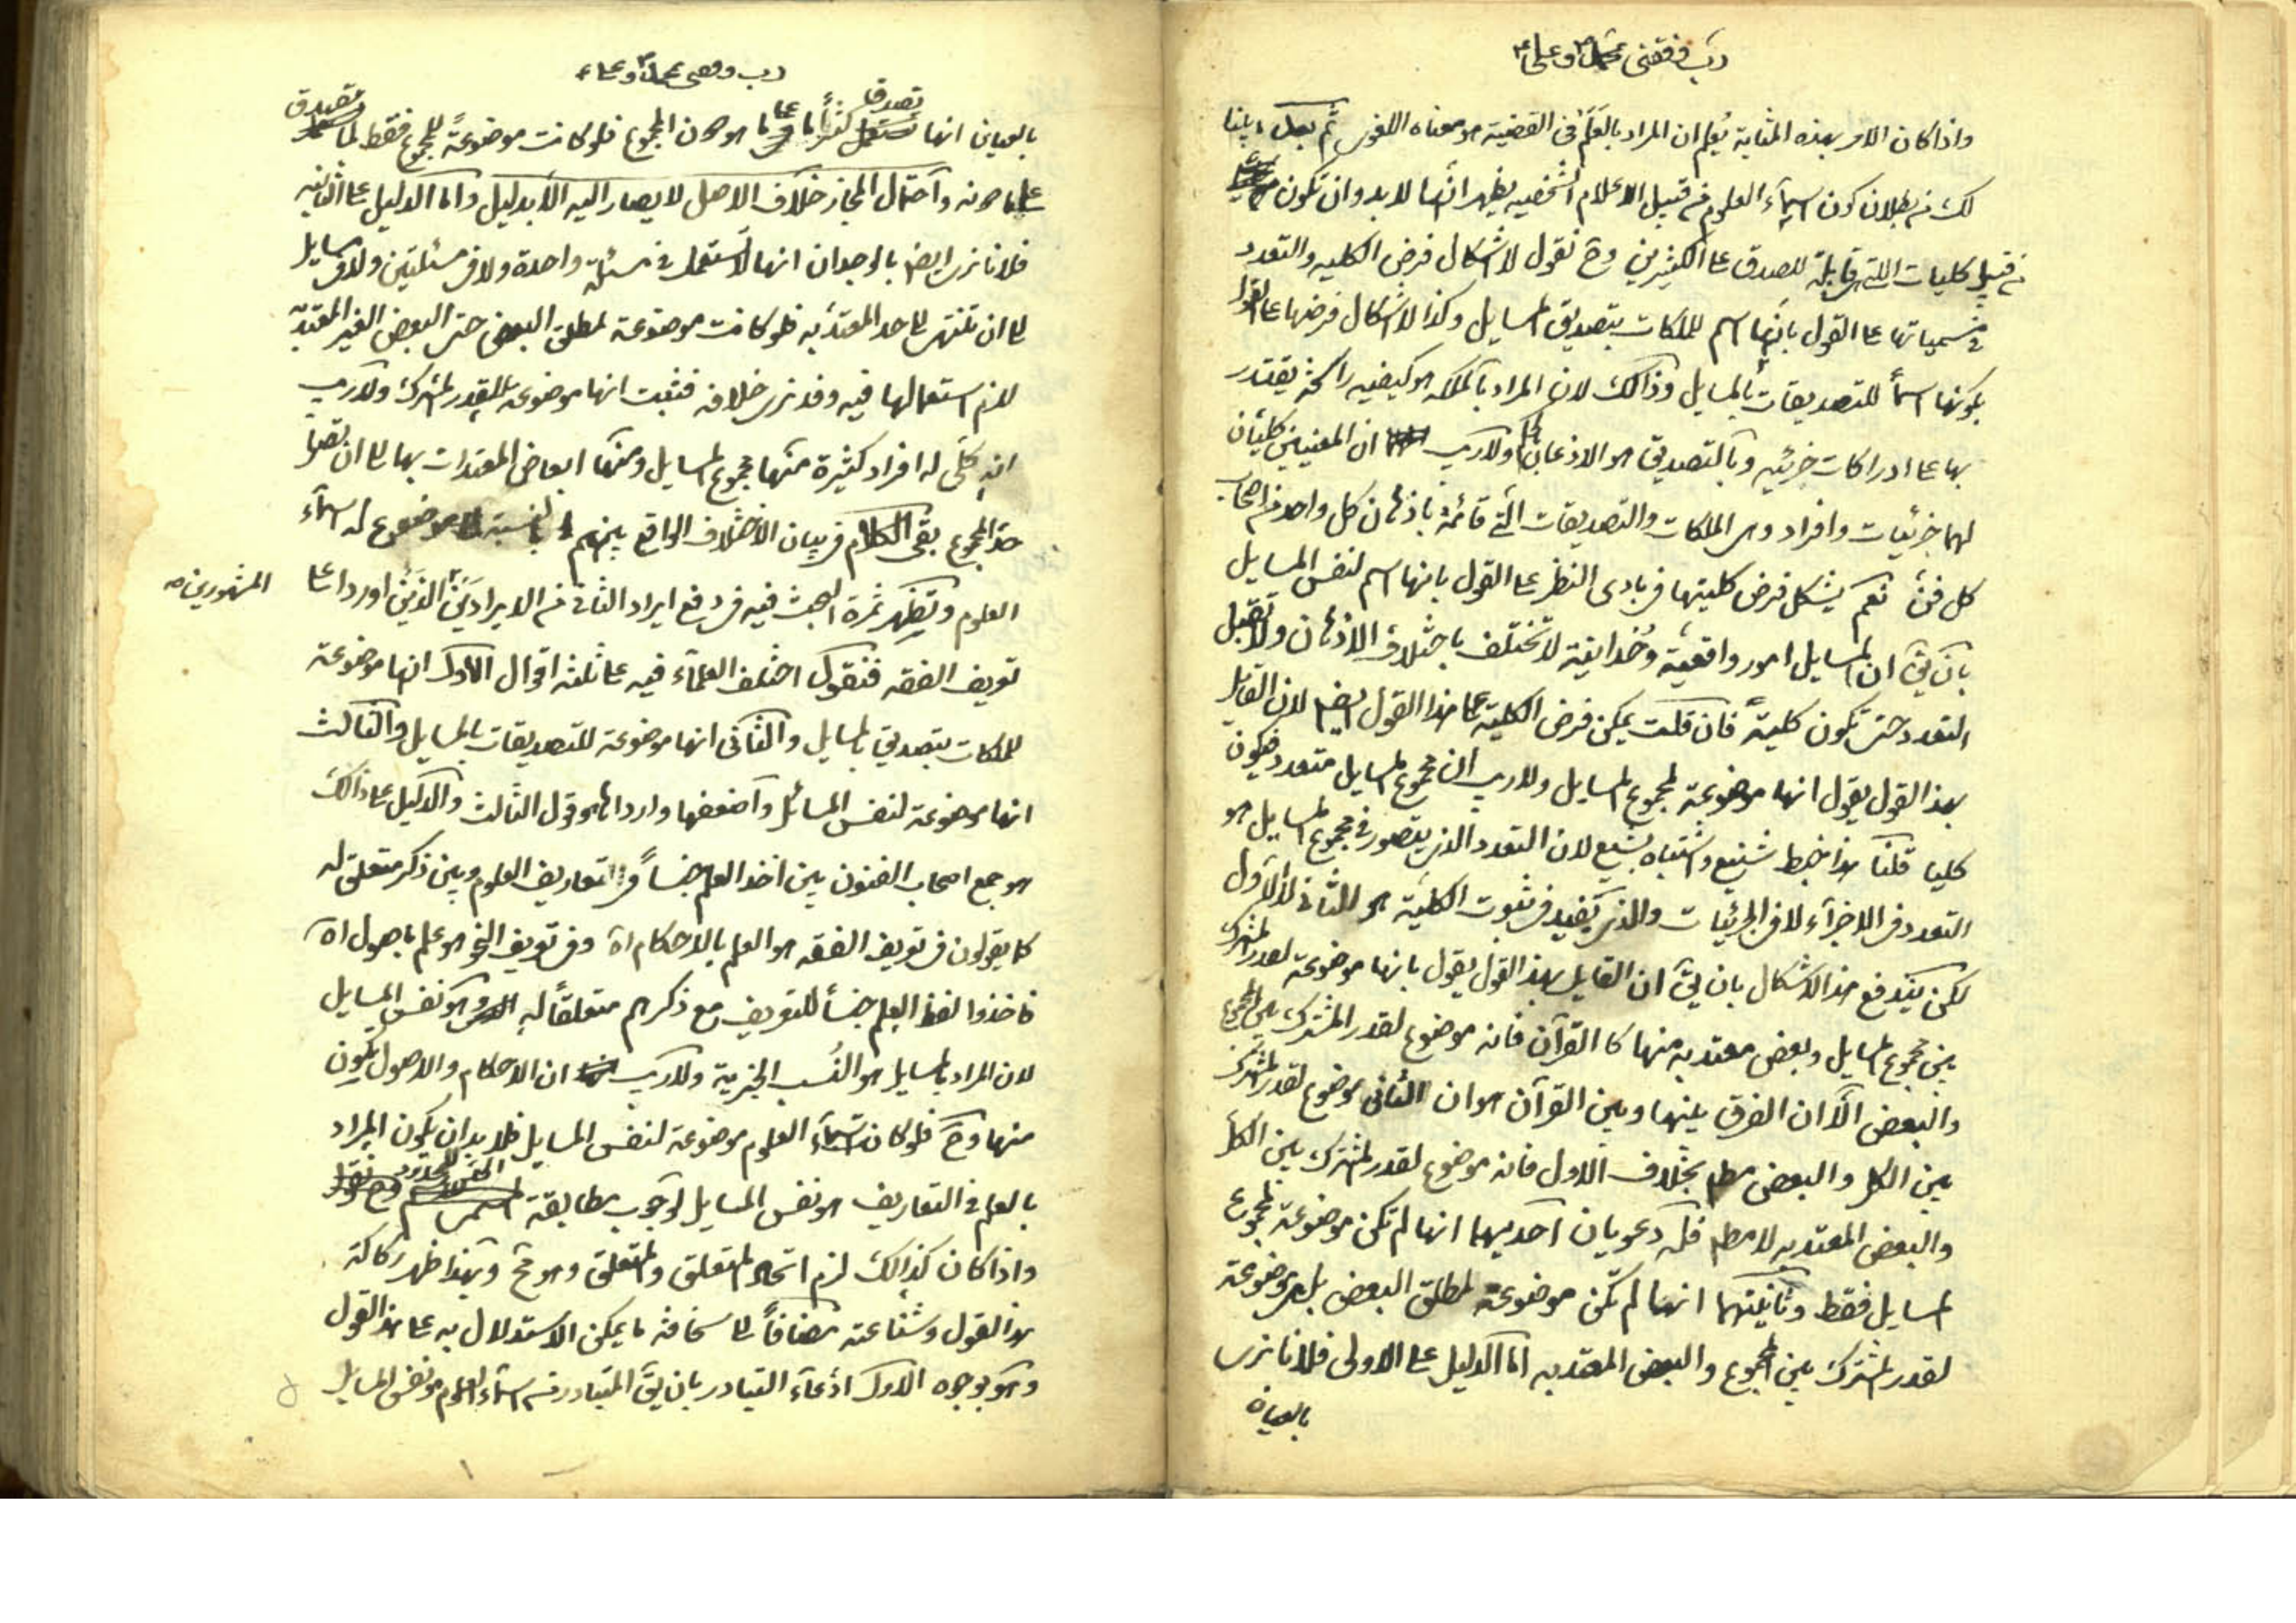 رب وفقنی بمحمد وعلی
واذا کان الامر بهذه المثابة یُعلم ان المراد بالعَلَم فی القضیة هو معناه اللغوی ثم بعد ما بینا
لک من بطلان کون اسماء العلوم من قبیل الاعلام الشخصیه یظهر انها لا بد وان تکون
من قبیل کلیات اللتی قابلة للصدق علی الکثیرین وح نقول لا اشکال فی فرض الکلیه والتعدد
فی مسمیاتها علی القول بانها اسم للملکات بتصدیق المسایل وکذا لا اشکال فی فرضها علی القول
بکونها اسماً للتصدیقات بالمسایل وذالک لان المراد بالملکه هو کیفیه راسخة یقتدر
بها علی ادراکات جزئیه وبالتصدیق هو الاذعان بها ولا ریب ان المعنیین کلیان
لهما جزئیات وافراد وهی الملکات والتصدیقات التی قائمة باذهان کل واحد من اصحاب
کل فن نعم یشکل فرض کلیتها فی بادی النظر علی القول بانها اسم لنفس المسایل
بان یق ان المسایل امور واقعیة وُحدانیة لا تختلف باختلاف الاذهان ولا تقبل
التعدد حتی تکون کلیة فان قلت یمکن فرض الکلیة علی هذا القول ایضا لان القایل
بهذا القول یقول انها موضوعة لمجموع المسایل ولا ریب ان مجموع المسایل متعدد فیکون
کلیا قلنا هذا خبط شنیع واشتباه بشیع لان التعدد الذی یتصور فی مجموع المسایل هو
التعدد فی الاجزاء لا فی الجزئیات والذی یفید فی ثبوت الکلیة هو الثانی لا الاول
لکن یندفع هذا الاشکال بان یق ان القایل بهذ القول یقول بانها موضوعة لقدر المشترک
بین مجموع المسایل وبعض معتد به منها کا القرآن فانه موضوع لقدر المشترک بین المجموع
والبعض الّا ان الفرق بینها وبین القرآن هو ان الثانی موضوع لقدر المشترک
بین الکل والبعض مطم بخلاف الاول فانه موضوع لقدر المشترک بین الکل
والبعض المعتد به لا مطم فله دعویان احدیهما انها لم تکن موضوعة لمجموع
المسایل فقط وثانیتهما انها لم تکن موضوعة لمطلق البعض بل موضوعة
لقدر المشترک بین المجموع والبعض المعتد به اما الدلیل علی الاولی فلانا نری
بالعیان
رب وفقنی بمحمد وعلی
بالعیان انها تصدق کثیراً ما علی ما هو دون المجموع فلو کانت موضوعةً للمجموع فقط لما تصدق
علی ما دونه واحتمال المجاز خلاف الاصل لا یصار الیه الا بدلیل واما الدلیل علی الثانیه
فلانا نری ایضا بالوجدان انها لا تستعمل فی مسئلة واحدة ولا فی مسئلتین ولا فی مسایل
الی ان تنتهی الی حد المعتد به فلو کانت موضوعة لمطلق البعض حتی البعض الغیر المعتد به
للزم استعمالها فیه وقد نری خلافه فثبت انها موضوعة للقدر المشترک ولا ریب
انه کلی له افراد کثیرة منها مجموع المسایل ومنها ابعاض المعتدات بها الی ان
حد المجموع بقی الکلام فی بیان الاختلاف الواقع بینهم بالنسبة الی موضوع له اسماء
العلوم وتظهر ثمرة البحث فیه فی دفع ایراد الثانی من الایرادین الذین اوردا علی المشهورین
تعریف الفقه فنقول اختلف العلماء فیه علی ثلثه اقوال الاول انها موضوعة
للملکات بتصدیق بالمسایل والثانی انها موضوعة للتصدیقات بالمسایل والثالث
انها موضوعة لنفس المسائل واضعفها واردئها هو قول الثالث والدلیل علی ذالک
هو جمع اصحاب الفنون بین اخذ العلم جنساً فی تعاریف العلوم وبین ذکر متعلق له
کما یقولون فی تعریف الفقه هو العلم بالاحکام اه وفی تعریف النحو هو علم باصول اه
فاخذوا لفظ العلم جنساً للتعریف مع ذکرهم متعلقاً له وهو نفس المسایل
لان المراد بالمسایل هو النُسب الخبریة ولا ریب ان الاحکام والاصول یکون
منها وح فلو کانت اسماء العلوم موضوعة لنفس المسایل فلا بد ان یکون المراد
بالعلم فی التعاریف هو نفس المسایل لوجوب مطابقة
واذا کان کذالک لزم اتحاد المتعلق والمتعلق وهو مح وبهذا ظهر رکاکة
هذا القول وشناعته مضافاً الی سخافة ما یمکن الاستدلال به علی هذا القول
وهو بوجوه الاول ادعاء التبادر بان یق المتبادر من اسماء العلوم هو نفس المسایل